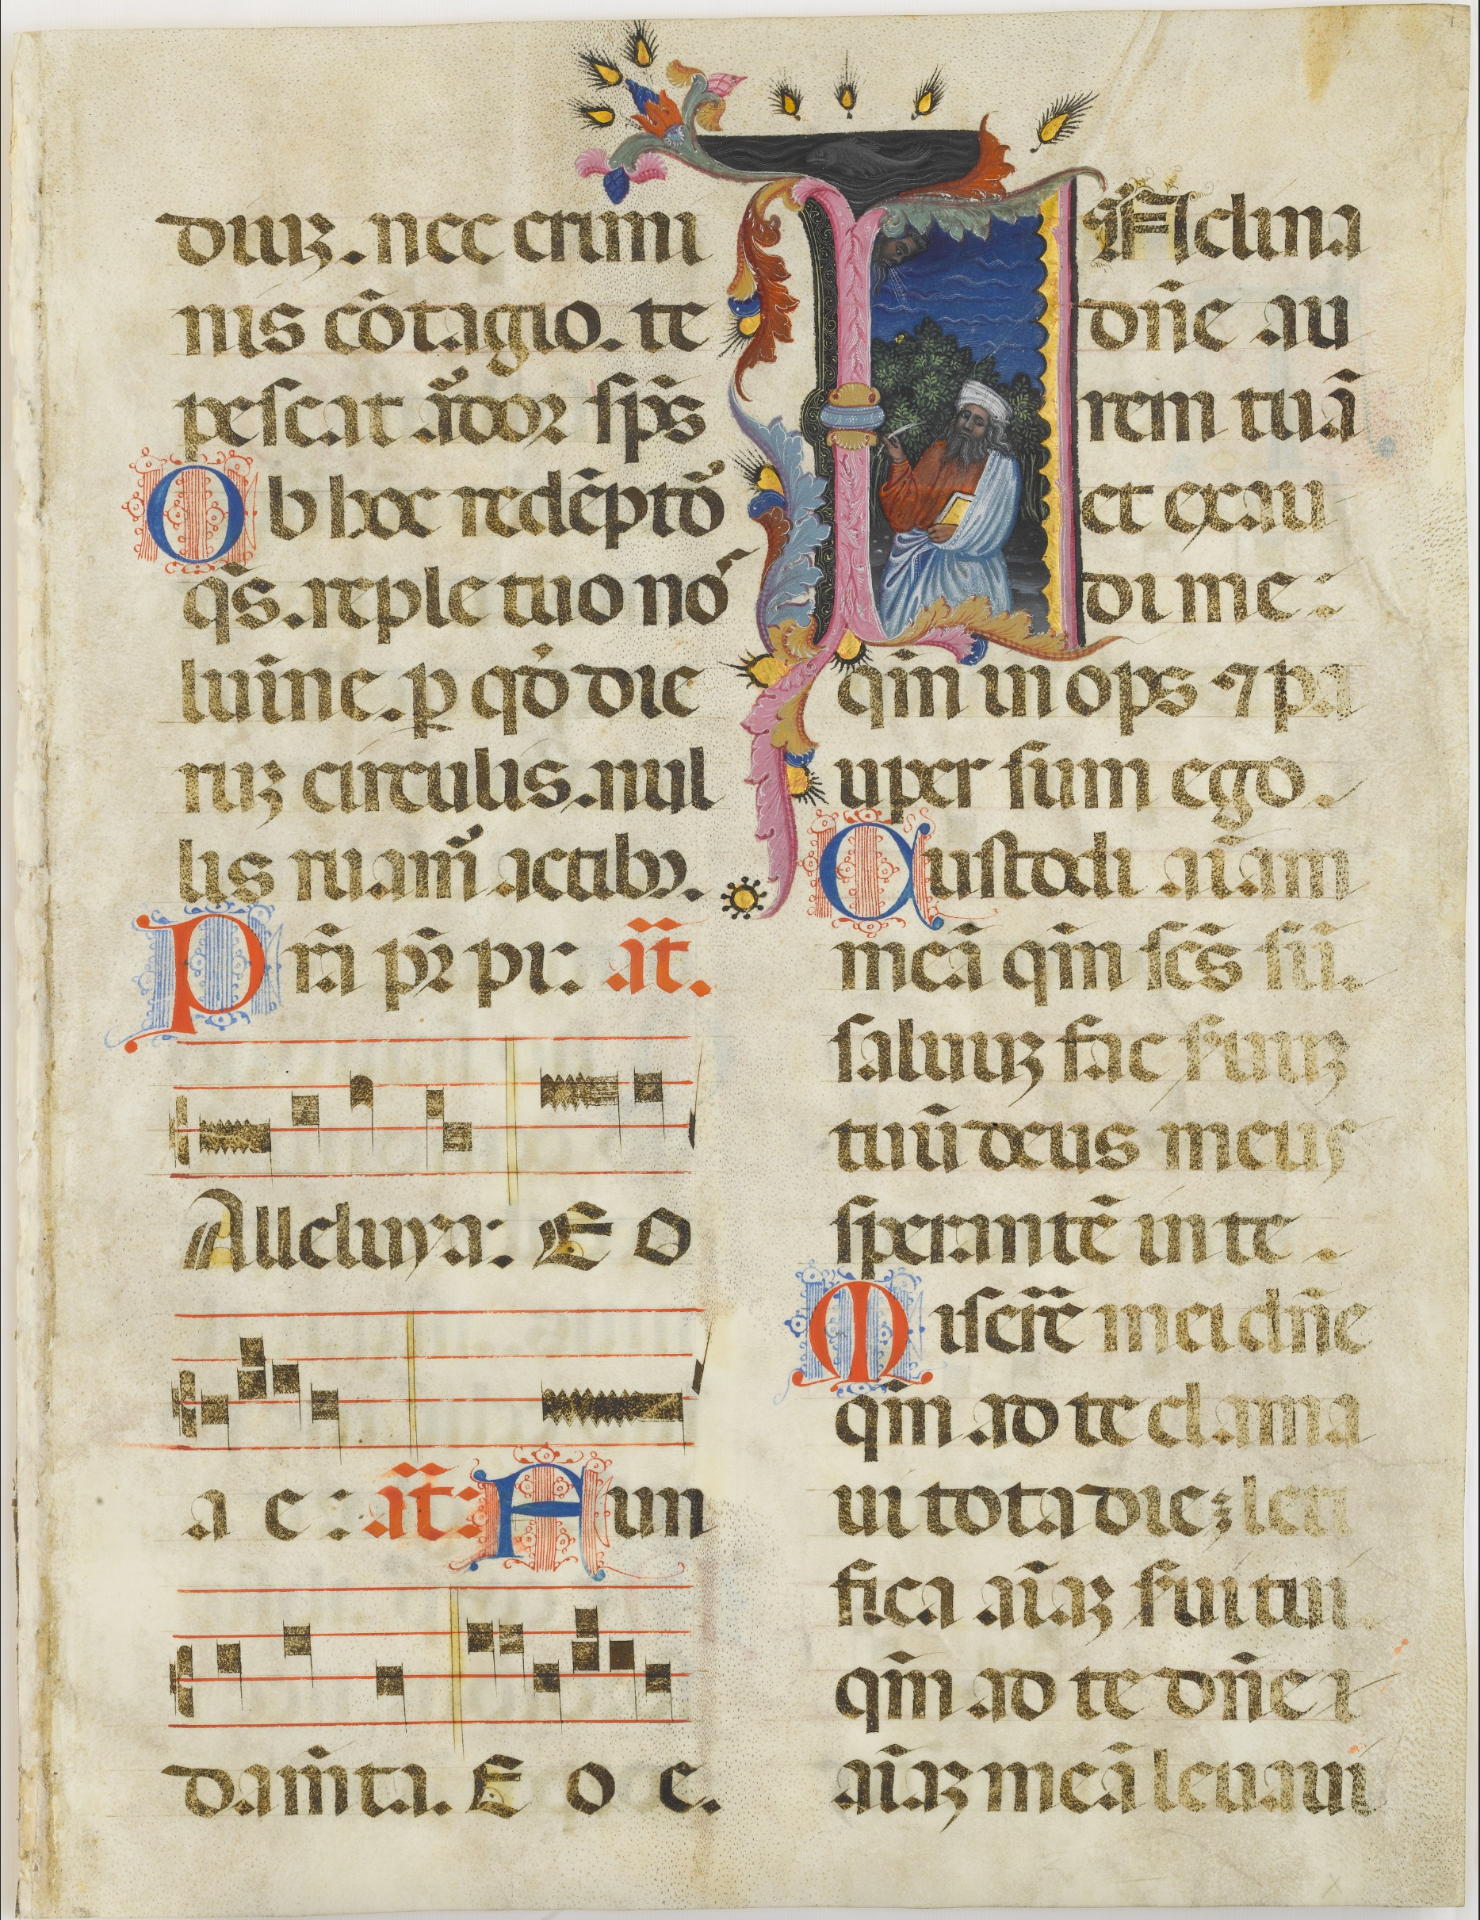 diuiꝫ. nec crimi
nis cōtagio. te
pescat ardor sp̄s
Ob hoc redēpto᷑
q̄s. reple tuo no᷑
lumīne. ꝑ qd̄ die
ruꝫ circulis. nul
lis ruam᷑ actibꝫ.
Prā pr̄ pr: at̄.
Alleluya: E O
a e: at̄: Mun
damīta. E o e.
INclina
dn̄e au
rem tuā
et exau
di me:
qm̄ inops ⁊ pa
uper sum ego.
Custodi aīam
meā qm̄ scs̄ sū.
saluuꝫ fac seruuꝫ
tuū deus meus
sperantē in te.
Miserē mei dn̄e
qm̄ ad te clama
ui tota die; leti
fica aīaꝫ serui tui
qm̄ ad te dn̄e
aīaꝫ meā leuaui